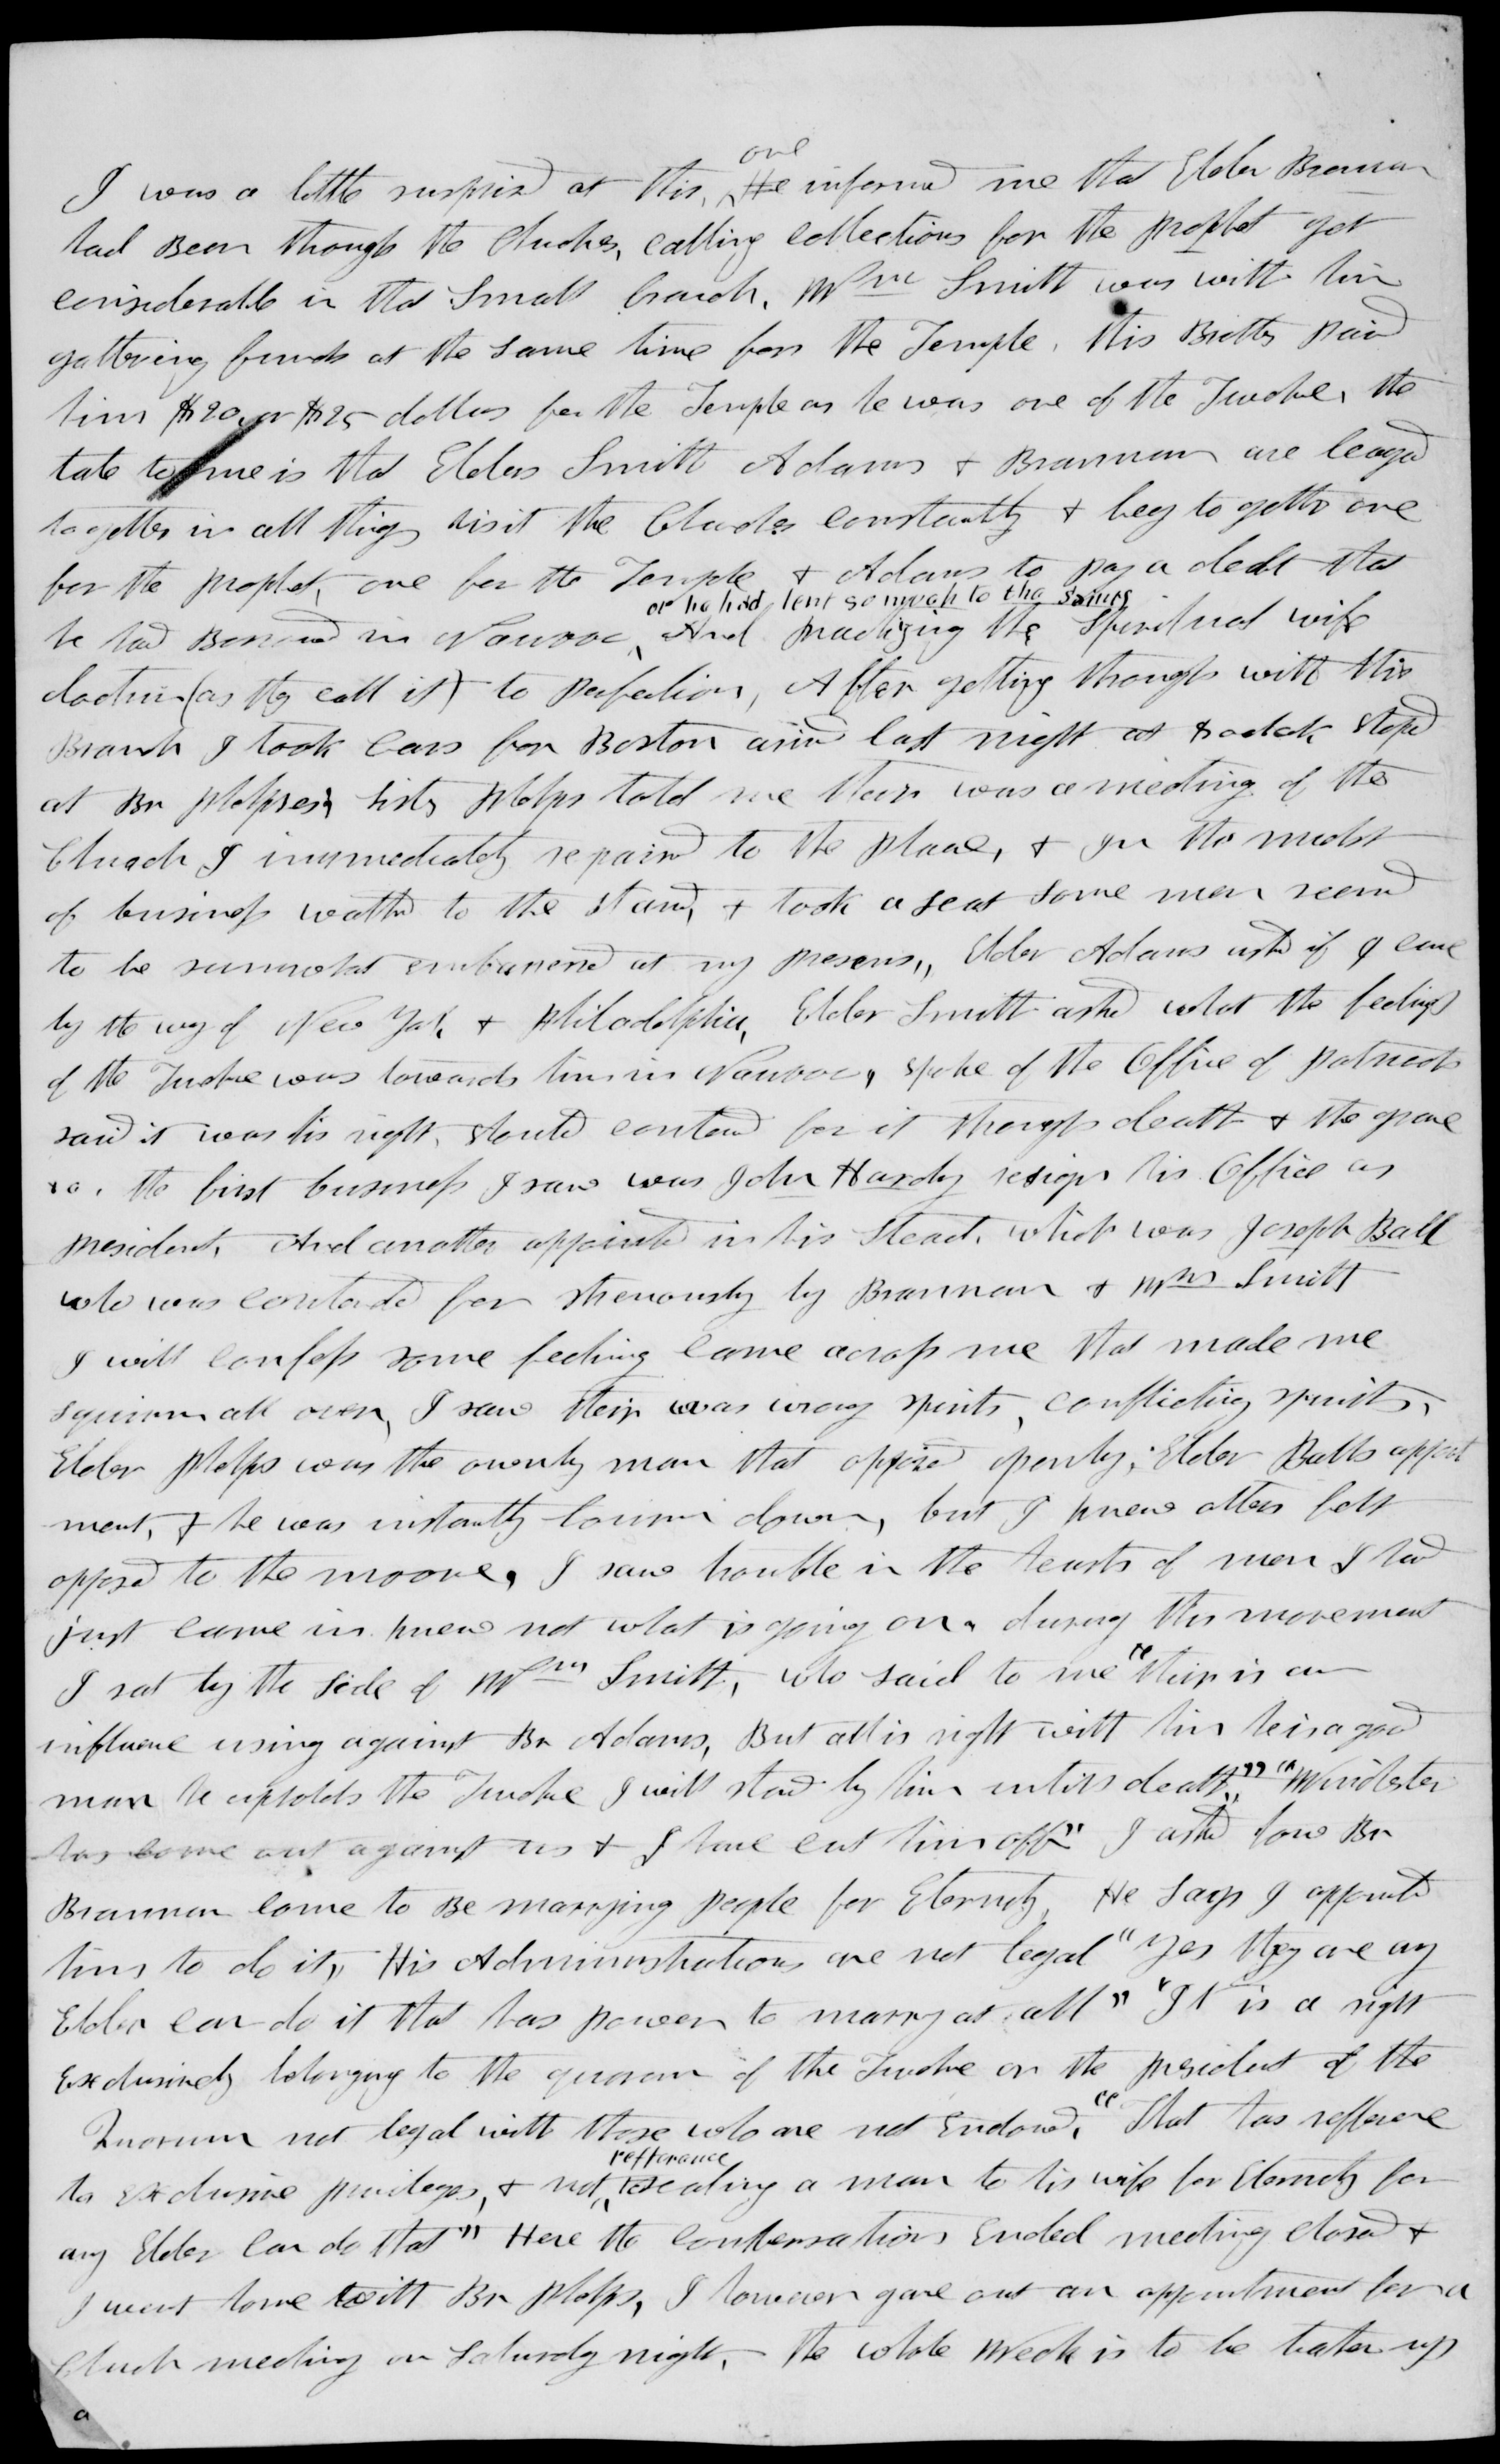 I was a little surprised at this, one He informed me that Elder Brannan
had Been through the Churches, calling collections for the prophet got
considerable in that Small branch. Wm Smith was with him
gathering funds at the same time for the Temple. this Brother paid
him $20, or $25 dollars for the Temple as he was one of the Twelve, the
tale to me is that Elders Smith Adams & Brannan are leagued
together in all things visit the Churches constantly & beg together one
for the prophet, one for the Temple & Adams to pay a debt that
or he had lent so much to the Smiths
he had Borrowed in Nauvoo, And practizing the Spiritual wife
doctrin (as they call it) to perfection, After getting through with this
Branch I took cars for Boston arived last night at oclock stoped
at Br Phelpses, Sister Phelps told me their was a meeting of the
Church I immediately repaired to the place, & in the midst
of business walked to the stand, & took a seat some men seemed
to be sumwhat embarresed at my presens,, Elder Adams asked if I came
by the way of New York & Philadelphia, Elder Smith asked what the feelings
of the Twelve was towards him in Nauvoo, spoke of the Office of patriarch
said it was his right, should contend for it through death & the grave
&c. the first business I saw was John Hardy resign his Office as
president, And another appointed in his stead, which was Joseph Ball
who was contended for strenously by Brannan & Wm Smith
I will confess some feeling came across me that made me
squirm all over, I saw their was wrong spirits, conflicting spirits,
Elder Phelps was the ownly man that opposed openly, Elder Balls appoint
ment, & he was instantly down, but I knew others felt
opposed to the moove, I saw trouble in the hearts of men I had
just came in knew not what is going on. during this movement
I sat by the side of Wm Smith, who said to me "their is an
influence using against Br Adams, But all is right with him he is a good
man he upholds the Twelve I will stand by him untill death," "Winchester
has come out against us & I have cut him off" I asked how Br
Brannan come to Be marrying people for Eternity, He says I appointed
him to do it, His Administrations are not legal "Yes they are any
Elder can do it that has power to marry at all" "It is a right
Exclusively belonging to the quorum of the Twelve or the president of the
Quorum not legal with those who are not Endowed, "That has refference
to exclusive privileges, & not refferance to sealing a man to his wife for Eternity for
any Elder can do that" Here the conversations Ended meeting closed &
I went home with Br Phelps, I however gave out an appointment for a
Church meeting on Saturdy night, the whole week is to be taken up
a